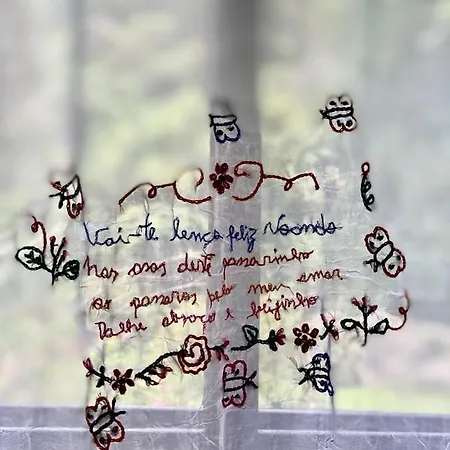 Vai-te lenço feliz Voando
nas asas deste passarinho
ao passares pelo meu amor
Dalhe abraço e beijinho